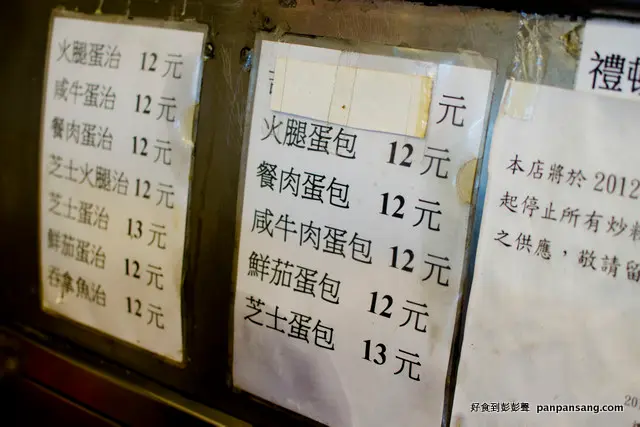 火腿蛋治 12元
咸牛蛋治 12元
餐肉蛋治 12元
芝士火腿治 12元
芝士蛋治 13元
鮮茄蛋治 12元
吞拿魚治 12元
元
火腿蛋包 12元
餐肉蛋包 12元
咸牛肉蛋包 12元
鮮茄蛋包 12元
芝士蛋包 13元
禮頓
本店將於 2012
起停止所有炒
之供應，敬請留
201
好食到彭彭聲 panpansang.com